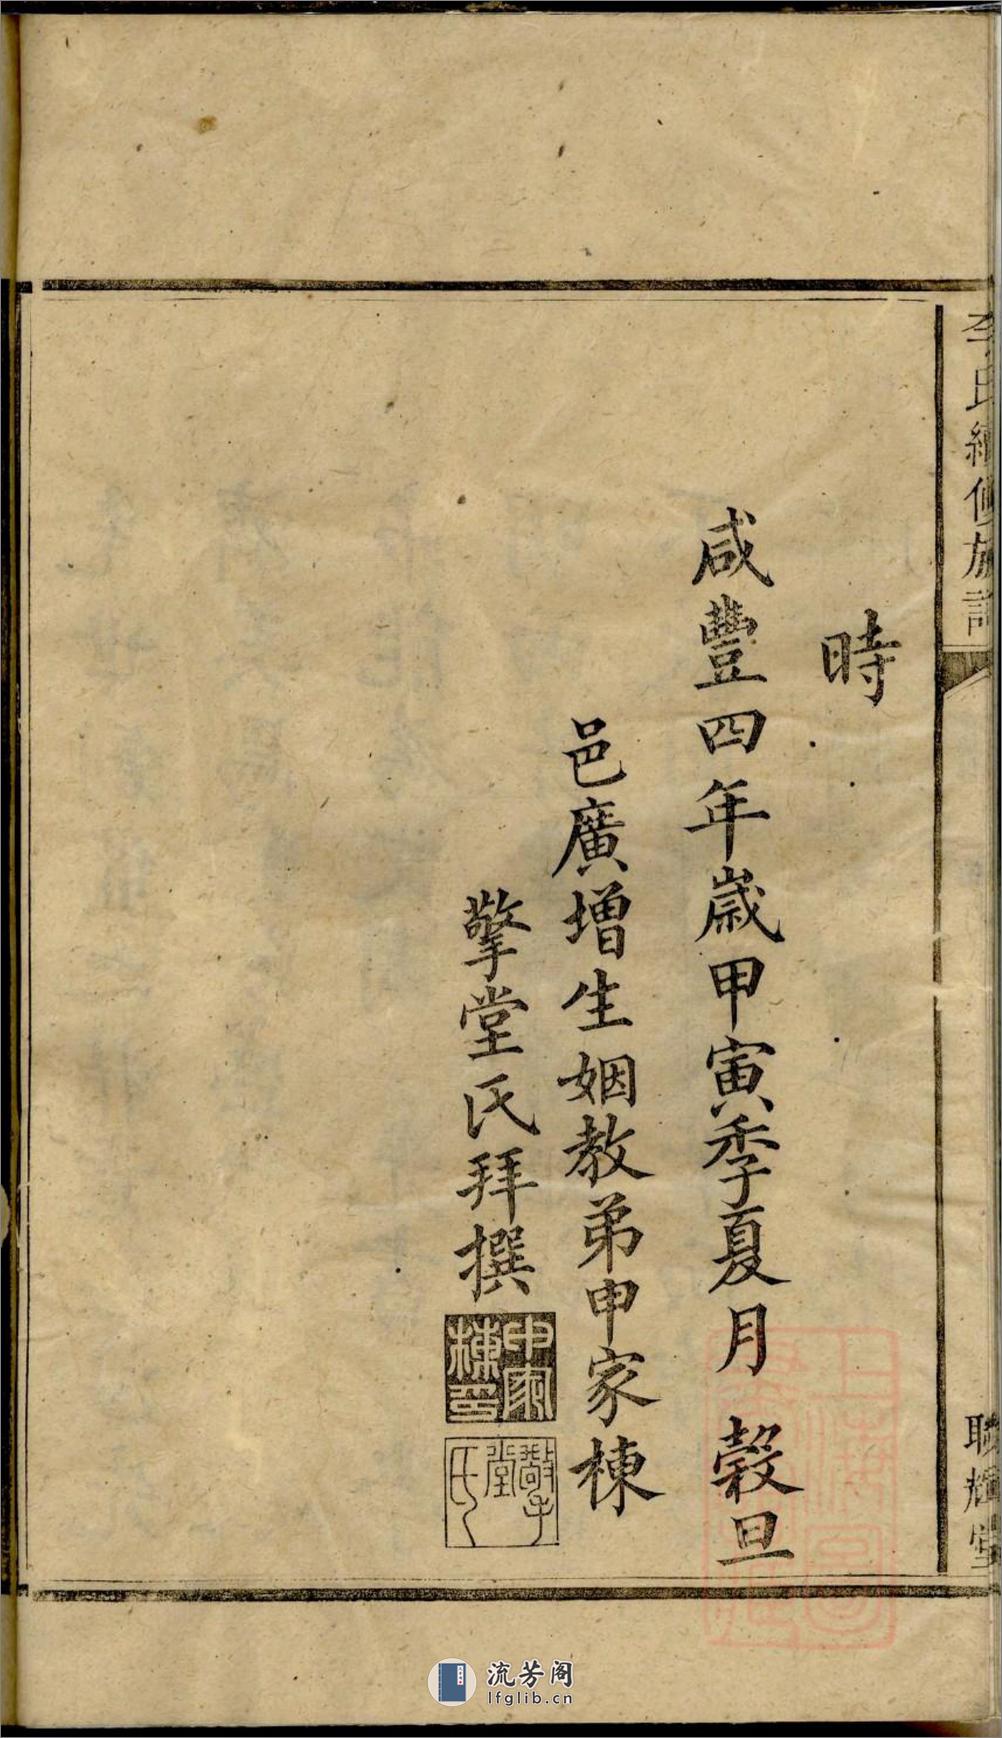 李氏續修族譜
聯輝堂
時
咸豐四年歲甲寅季夏月 穀旦
邑廣增生姻教弟申家棟
擎堂氏拜撰
申家棟印
擎堂氏
流芳阁
lfglib.cn